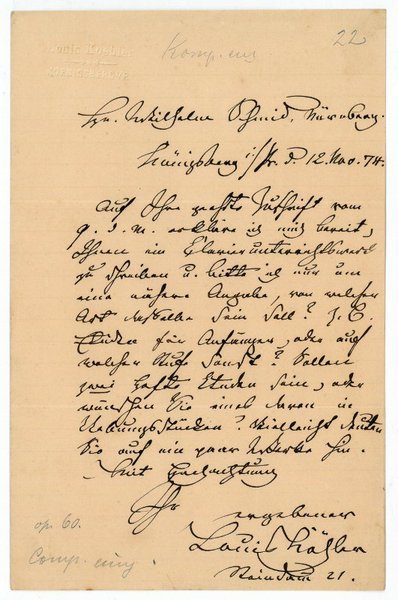 Louis Köhler
KÖNIGSBERG
Komp. eing.
22
Hrn. Wilhelm Schmid, Nürnberg.
Königsberg i/Pr. d. 12. Nov. 74.
Auf Ihre geehrte Zuschrift vom
9. d. M. erkläre ich mich bereit,
Ihnen ein Clavierunterrichtswerk
zu schreiben u. bitte ich nur um
eine nähere Angabe, von welcher
Art dasselbe sein soll? z. B.
Etüden für Anfänger, oder auf
welcher Stufe sonst? Sollen
zwei Hefte Etuden sein, oder
wünschen Sie eines davon in
Uebungsstücken? Vielleicht deuten
Sie auf ein paar Werke hin.
Mit Hochachtung
Ihr ergebener
Louis Köhler
Steindamm 21.
op. 60.
Comp. eing.